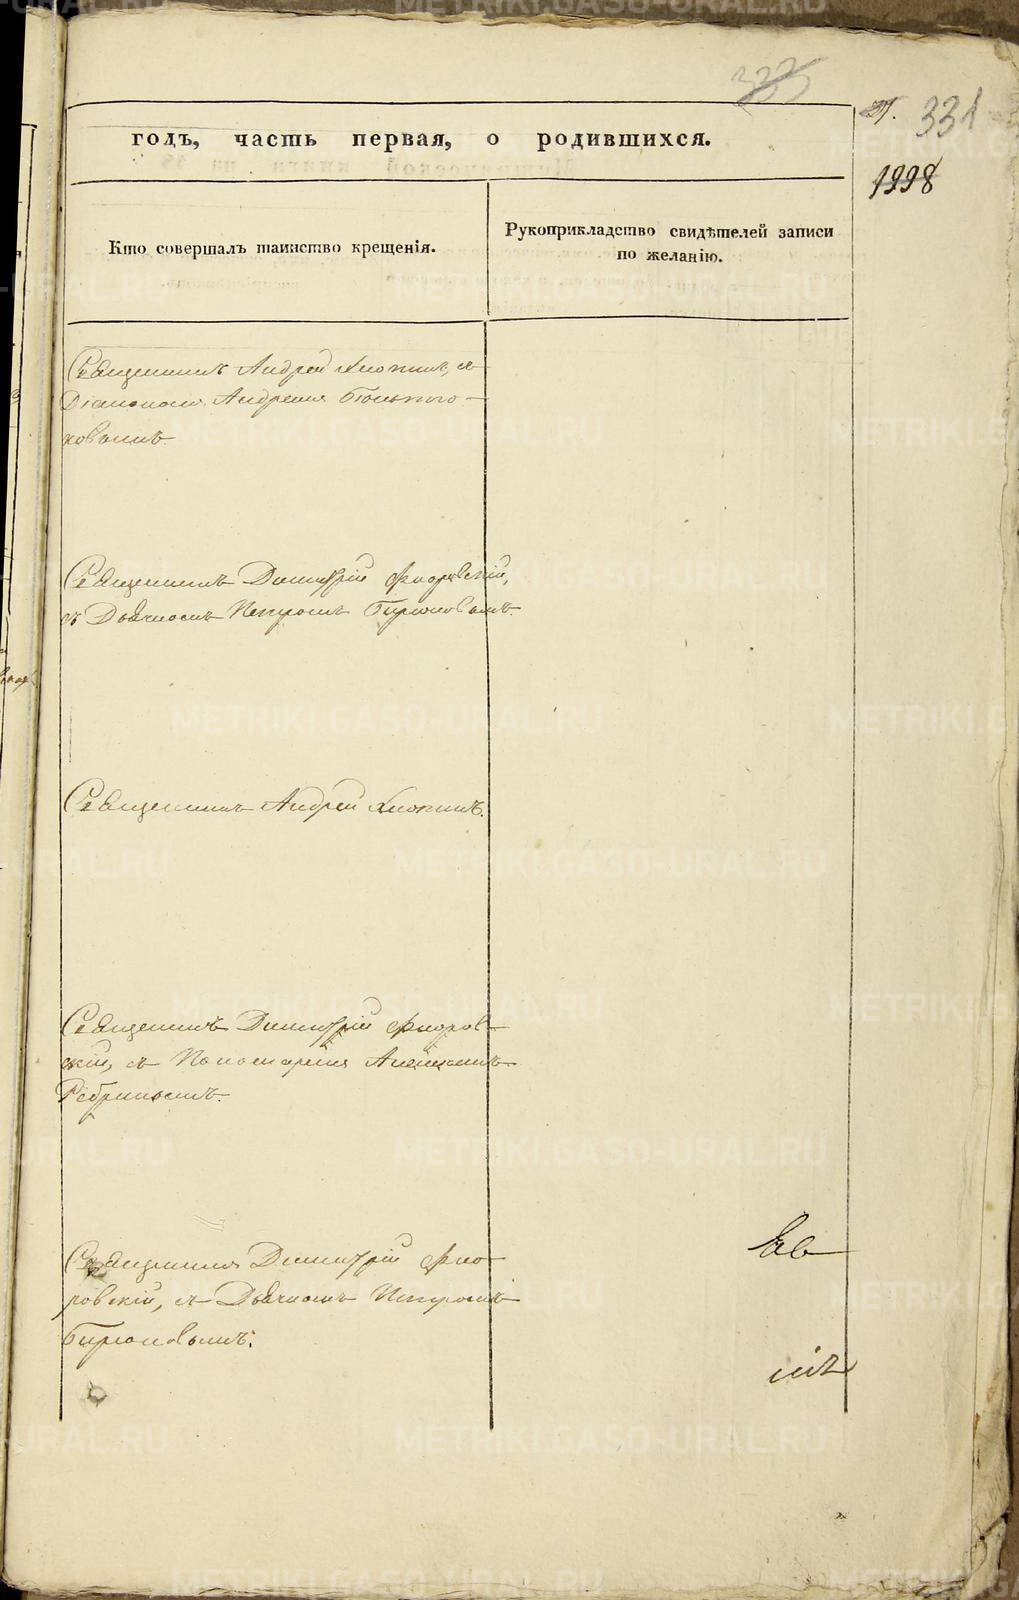 333
37. 331
1998
годъ, часть первая, о родившихся.
Кто совершалъ таинство крещенія.
Рукоприкладство свидѣтелей записи
по желанію.
Священникъ Андрей Хлопинъ, съ
Діакономъ Андреемъ
Священникъ Димитрій Флоровскій,
съ Дьячкомъ Петромъ Бирюковымъ.
Священникъ Андрей Хлопинъ.
Священникъ Димитрій Флоров-
скій, съ Пономаремъ Алексіемъ
Ребринымъ.
Священникъ Димитрій Фло-
ровскій, съ Дьячкомъ Петромъ
Бирюковымъ.
METRIKI.GASO-URAL.RU